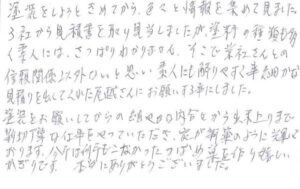 塗装をしようときめてから、色々と情報を集めて見ました
3社から見積書を取り見当しましたが、塗料の種類も多
く素人には、さっぱりわかりません。そこで業社さんとの
信頼関係以外ないと思い素人にも解りやすく事細かな
見積りを出してくれた尾越さんにお願いする事にしました。
塗装をお願いしてからの 内容とから 上りまで
親切丁寧な仕事をやっていただき、家が新築のように輝いて
おります。今年は何年もこなかったつばめ 巣を作り嬉しい
かぎりです。本当にありがとうございました。